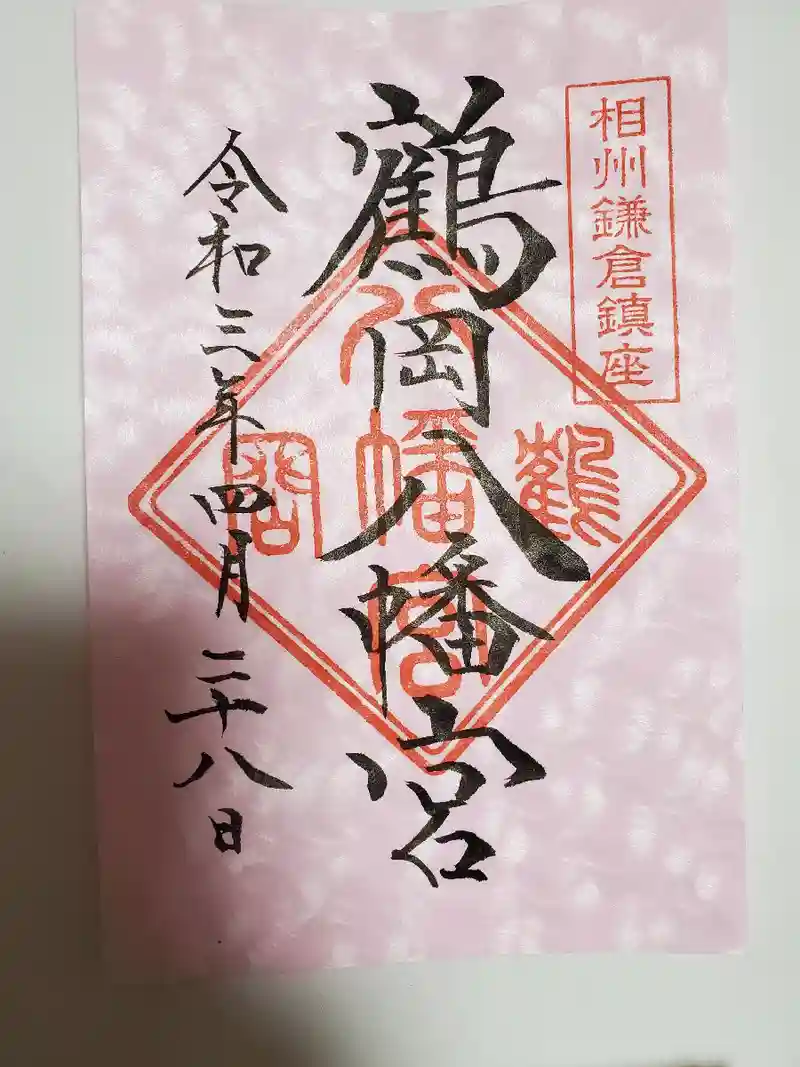 相州鎌倉鎮座
鶴岡八幡宮
令和三年四月二十八日
八
鶴 幡 岡
宮